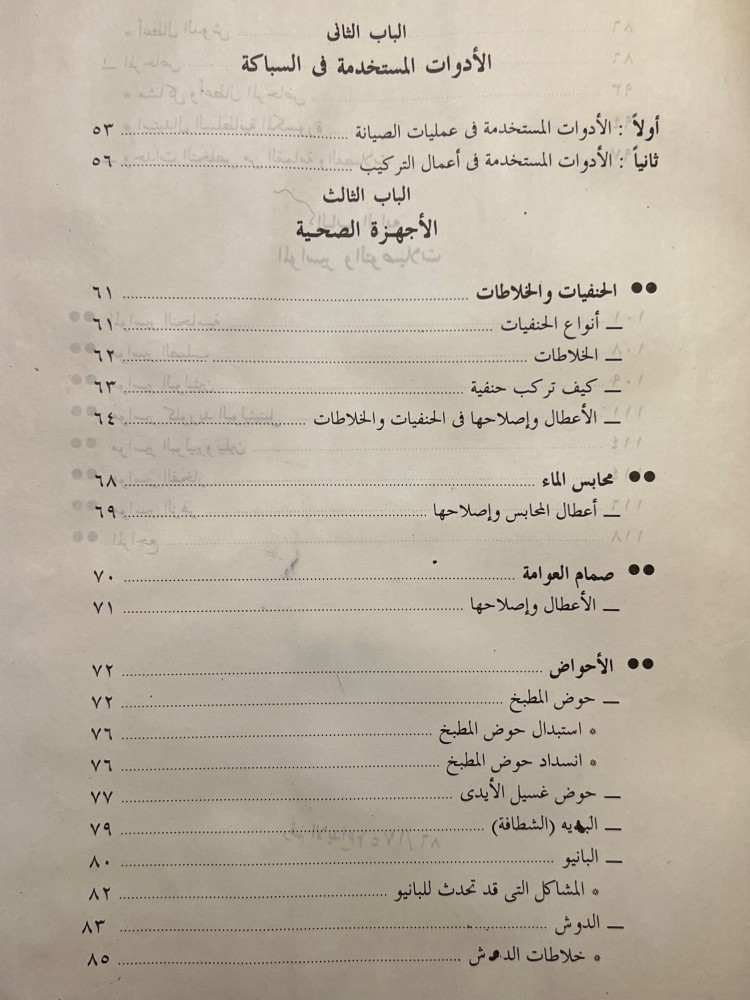 الباب الثانى
الأدوات المستخدمة فى السباكة
أولاً : الأدوات المستخدمة فى عمليات الصيانة ........ ٥٣
ثانياً : الأدوات المستخدمة فى أعمال التركيب ........ ٥٦
الباب الثالث
الأجهزة الصحية
●● الحنفيات والخلاطات ........ ٦١
ــ أنواع الحنفيات ........ ٦١
ــ الخلاطات ........ ٦٢
ــ كيف تركب حنفية ........ ٦٣
ــ الأعطال وإصلاحها فى الحنفيات والخلاطات ........ ٦٤
●● محابس الماء ........ ٦٨
ــ أعطال المحابس وإصلاحها ........ ٦٩
●● صمام العوامة ........ ٧٠
ــ الأعطال وإصلاحها ........ ٧١
●● الأحواض ........ ٧٢
ــ حوض المطبخ ........ ٧٢
* استبدال حوض المطبخ ........ ٧٦
* انسداد حوض المطبخ ........ ٧٦
ــ حوض غسيل الأيدى ........ ٧٧
ــ البديه (الشطافة) ........ ٧٩
ــ البانيو ........ ٨٠
* المشاكل التى قد تحدث للبانيو ........ ٨٢
ــ الدوش ........ ٨٣
* خلاطات الدوش ........ ٨٥